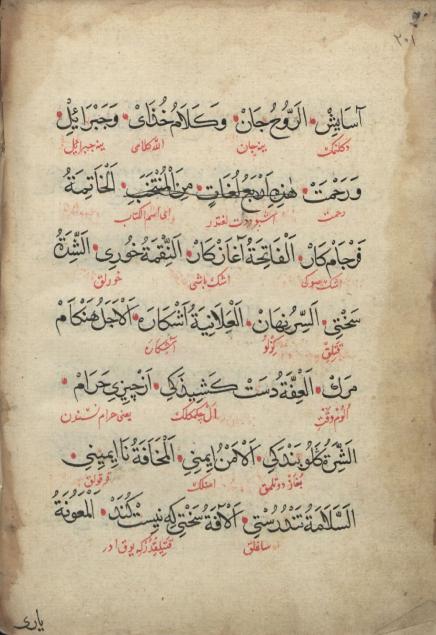 ٢٠١
آسَايِشْ • اَلرُّوحُ جَانْ • وَكَلَامُ خُذَاىْ • وَجَبْرَائِلْ •
دكلنمك ينه جان الله كلامى ينه جبرائيل
وَرَحْمَتْ • هٰذِهِ اَرْبَعُ لُغَاتٍ • مِنَ الْمُنْتَخَبِ • اَلْخَاتِمَةُ
رحمت اشبو درت لغتدر اى اسم الكتاب
فَرْجَامِ كَارْ • اَلْفَاتِحَةُ آغَازِ كَارْ • اَلنِّقْمَةُ خُورِى • اَلشِّدَّةُ
اشك صوكى اشك باشى خورلق
سَخْتِى • اَلسِّرُّ نِهَانْ • اَلْعَلَانِيَةُ آشْكَارَه • اَلْاَجَلُ هَنْكَامِ
قتيلق كزلو آشكاره
مَرْكْ • اَلْعِفَّةُ دَسْتْ كَشِيذَكِى • اَزْ چِيزِى حَرَامْ •
اولوم وقتى ال چكلمكلك يعنى حرام نسنه دن
اَلشَّرَهُ كُلُوبَنْدَكِى • اَلْاَمْنُ اِيمِنِى • اَلْمَخَافَةُ نَا اِيمِينِى •
بغاز امنلك قورقولق
اَلسَّلَامَةُ تَنْدُرُسْتِى • اَلْآفَةُ سَخْتِى كِه نِيسْتْ كُنَدْ • اَلْمَعُونَةُ
صاغلق قتيلقدر كه يوق ادر
يارى